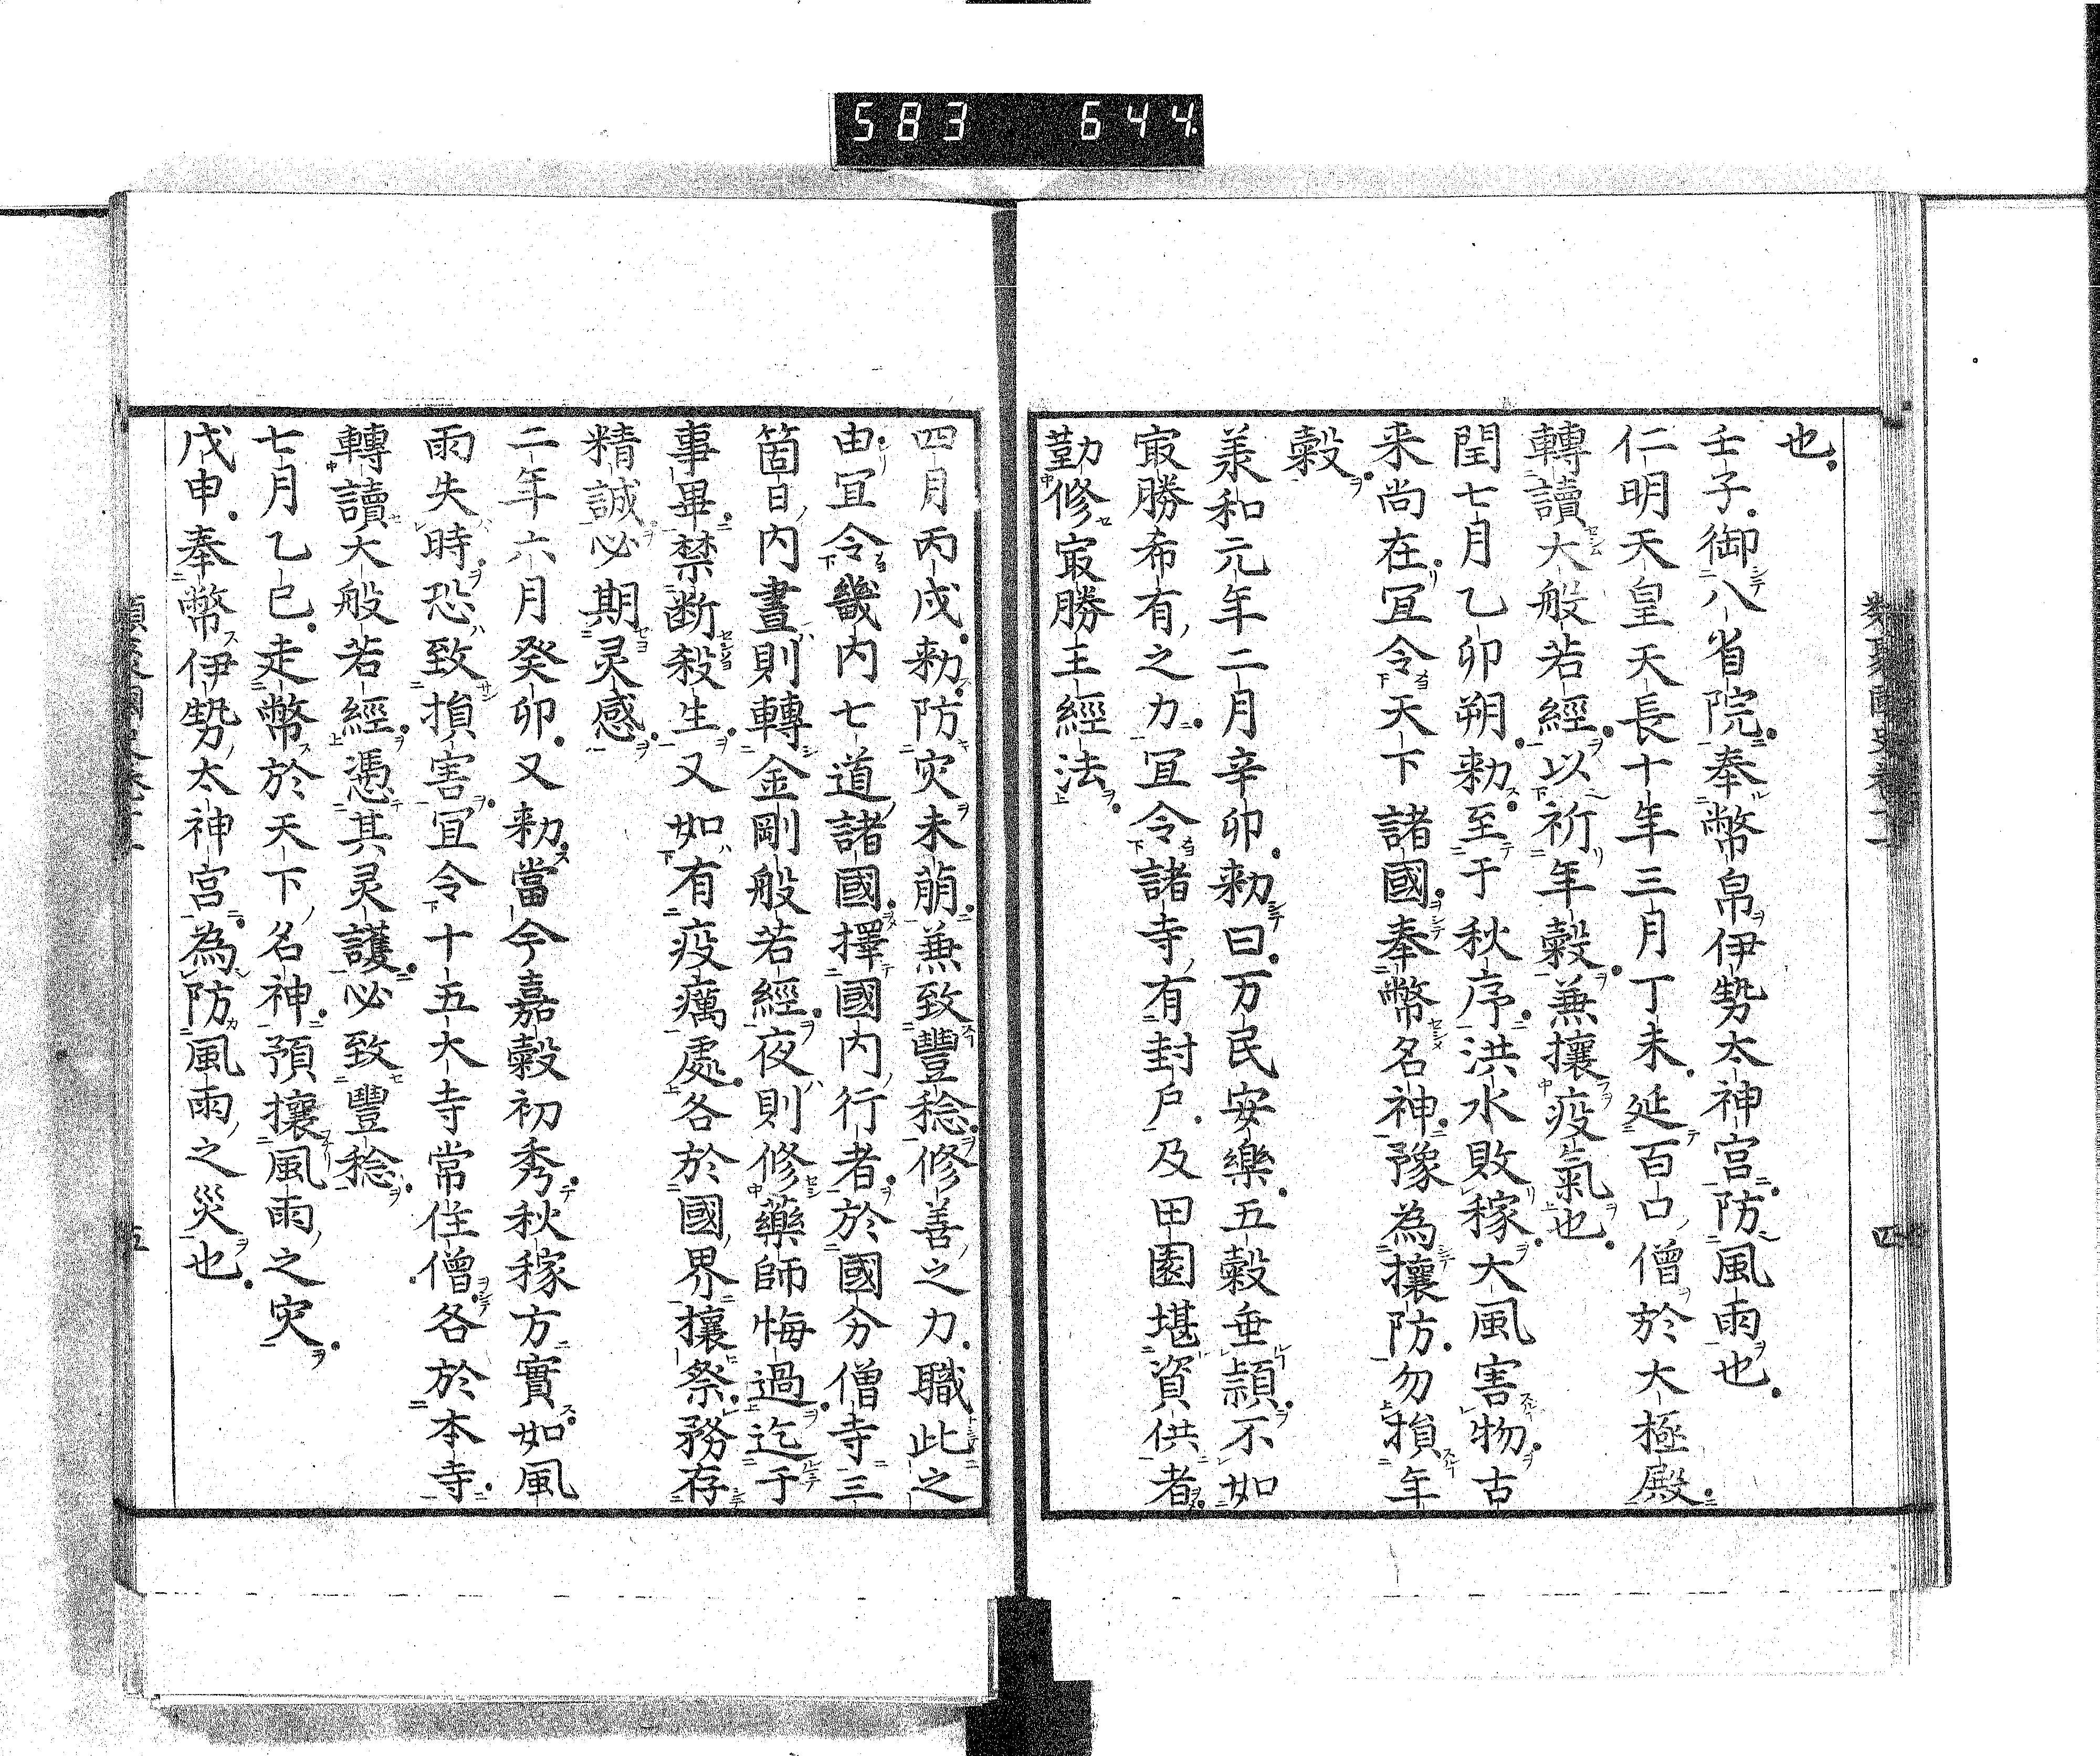 583 644
也
壬子御八省院奉幣帛伊勢太神宮防風雨也
仁明天皇天長十年三月丁未延百口僧於大極殿
轉讀大般若經以祈年穀兼攘疫氣也
閏七月乙卯朔勅至于秋序洪水敗稼大風害物古
来尚在冝令天下諸國奉幣名神豫為攘防勿損年
穀
羕和元年二月辛卯勅曰万民安樂五穀垂頴不如
㝡勝希有之力冝令諸寺有封戶及田園堪資供者
勤修㝡勝王經法
四月丙戌勅防灾未萠兼致豐稔修善之力職此之
由冝令畿内七道諸國擇國内行者於國分僧寺三
箇日内晝則轉金剛般若經夜則修藥師悔過迄于
事畢禁断殺生又如有疫癘處各於國界攘祭務存
精誠必期灵感
二年六月癸卯又勅當今嘉穀初秀秋稼方實如風
雨失時恐致損害冝令十五大寺常住僧各於本寺
轉讀大般若經憑其灵護必致豐稔
七月乙巳走幣於天下名神預攘風雨之灾
戊申奉幣伊勢太神宮為防風雨之災也